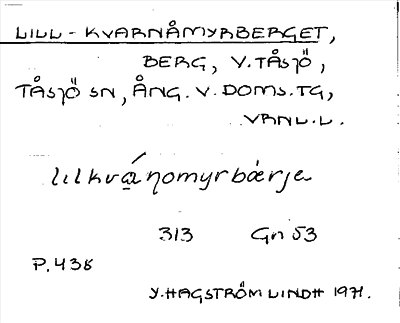 LILL-KVARNÅMYRBERGET,
BERG, V. TÅSJÖ,
TÅSJÖ SN, ÅNG. V. DOMS. TG,
VRNL.L.
lılkvánomyrbærje
313 Gn 53
P. 438
Y. HAGSTRÖM LINDH 1971.